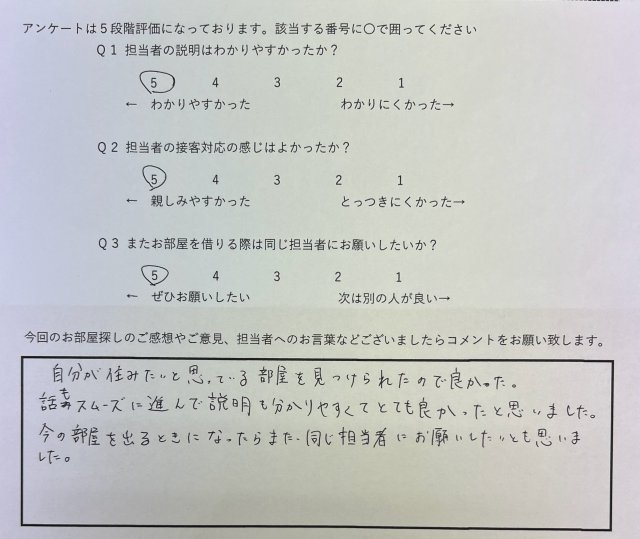 アンケートは5段階評価になっております。該当する番号に〇で囲ってください
Q1 担当者の説明はわかりやすかったか？
5 4 3 2 1
← わかりやすかった わかりにくかった→
Q2 担当者の接客対応の感じはよかったか？
5 4 3 2 1
← 親しみやすかった とっつきにくかった→
Q3 またお部屋を借りる際は同じ担当者にお願いしたいか？
5 4 3 2 1
← ぜひお願いしたい 次は別の人が良い→
今回のお部屋探しのご感想やご意見、担当者へのお言葉などございましたらコメントをお願い致します。
自分が住みたいと思っている部屋を見つけられたので良かった。
話もスムーズに進んで説明も分かりやすくてとても良かったと思いました。
今の部屋を出るときになったらまた同じ担当者にお願いしたいとも思いま
した。